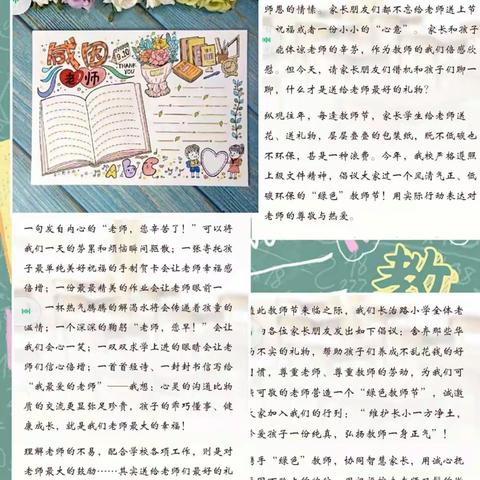 感恩
老师
9.10
THANK
YOU
ABC
师恩的情愫。家长朋友们都不忘给老师送上节
祝福或者一份小小的“心意”。家长和孩子
能体谅老师的辛劳，作为教师的我们倍感欣
慰。但今天，请家长朋友们借机和孩子们聊一
聊，什么才是送给老师最好的礼物？
纵观往年，每逢教师节，家长学生给老师送
花、送礼物，层层叠叠的包装纸，既不低碳也
不环保，甚是一种浪费。今年，我校严格遵照
上级文件精神，倡议大家过一个风清气正、低
碳环保的“绿色”教师节！用实际行动表达对
老师的尊敬与热爱。
一句发自内心的“老师，您辛苦了！”可以将
我们一天的劳累和烦恼瞬间驱散；一张寄托孩
子最单纯美好祝福的手制贺卡会让老师幸福感
倍增；一份最最精美的作业会让老师眼前一
一杯热气腾腾的解渴水将会传递着孩童的
温情；一个深深的鞠躬“老师，您早！”会让
我们会心一笑；一双双求学上进的眼睛会让老
师们信心倍增；一首首经诗、一封封书信写给
“我最爱的老师”——我想：心灵的沟通比物
质的交流更显弥足珍贵，孩子的乖巧懂事、健
康成长，就是我们老师最大的幸福！
理解老师的不易，配合学校各项工作，则是对
老师最大的鼓励……其实送给师们最好的礼
教
值此教师节来临之际，我们长治路小学全体老
为各位家长朋友发出如下倡议：舍弃那些华
为不实的礼物，帮助孩子们养成不乱花钱的好
习惯，尊重老师、尊重教师的劳动，为我们可
敬可敬的老师营造一个“绿色教师节”，诚邀
大家加入我们的行列：“维护长小一方净土，
爱孩子一份纯真，弘扬教师一身正气”！
携手“绿色”教师，协同智慧家长，用诚心托